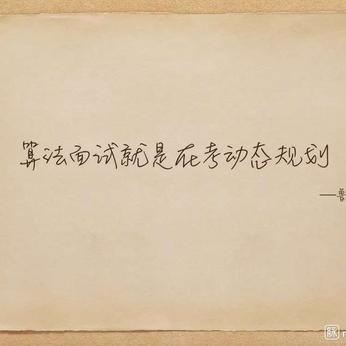 算法面试就是在考动态规划
——鲁